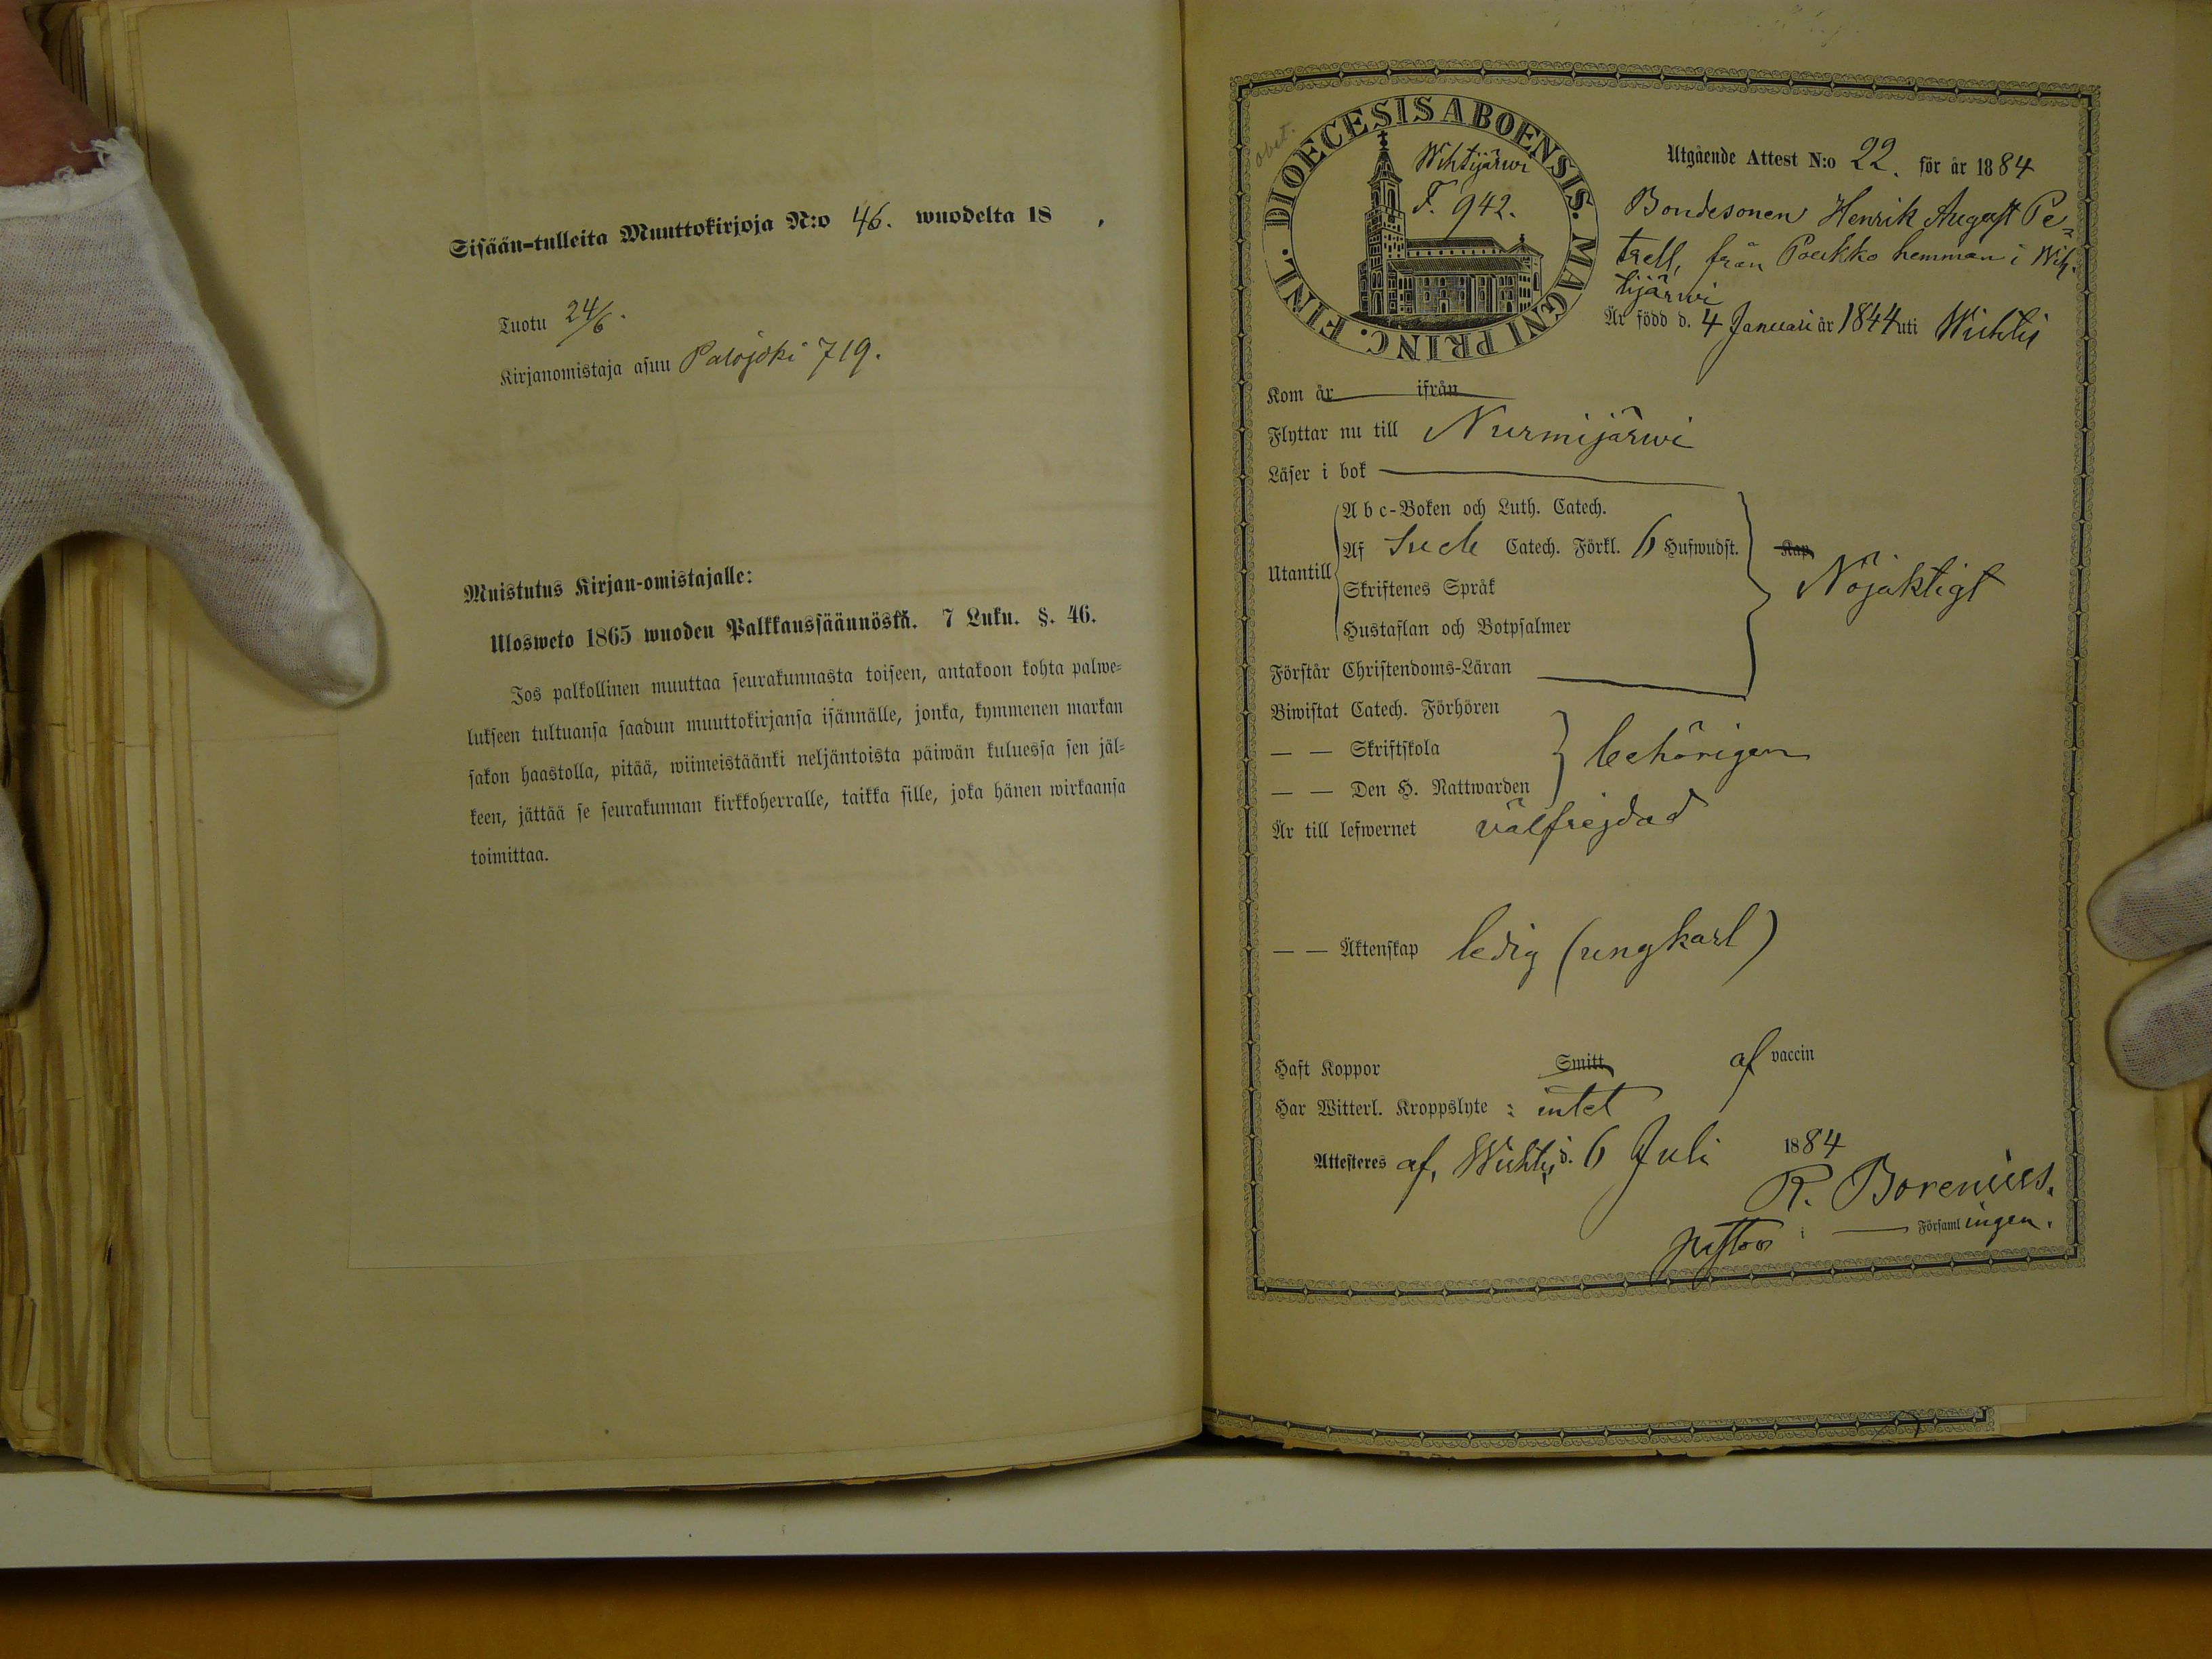 Sisään-tulleita Muuttokirjoja N:o 46. wuodelta 18 .
Tuotu 24/6.
Kirjanomistaja asuu Palojoki 719.
Muistutus Kirjan-omistajalle:
Ulosweto 1865 wuoden Palkkaussäännöstä. 7 Luku. §. 46.
Jos palkollinen muuttaa seurakunnasta toiseen, antakoon kohta palwe=
lukseen tultuansa saadun muuttokirjansa isännälle, jonka, kymmenen markan
sakon haastolla, pitää, wiimeistäänki neljäntoista päiwän kuluessa sen jäl=
keen, jättää se seurakunnan kirkkoherralle, taikka sille, joka hänen wirkaansa
toimittaa.
DIOECESIS ABOENSIS. MAGNI PRINC. FINL.
Wihtijärwi
F. 942.
Utgående Attest N:o 22. för år 1884
Bondesonen Henrik August Pe=
trell, från Poukko hemman i Wih=
tijärwi
Är född d. 4 Januari år 1844 uti Wichtis
Kom år ifrån
Flyttar nu till Nurmijärwi
Läser i bok
Utantill
A b c-Boken och Luth. Catech.
Af Sveb Catech. Förkl. 6 Hufwudst.
Skriftenes Språk
Hustaflan och Botpsalmer
Kap
Nöjaktigt
Förstår Christendoms-Läran
Biwistat Catech. Förhören
— — Skriftskola
— — Den H. Nattwarden
behörigen
Är till lefwernet välfrejdad
— — Äktenskap ledig (ungkarl)
Haft Koppor Smitt af vaccin
Har Witterl. Kroppslyte : intet
Attesteres af, Wichtis d. 6 Juli 1884
R. Borenius.
pastor i — Församlingen.